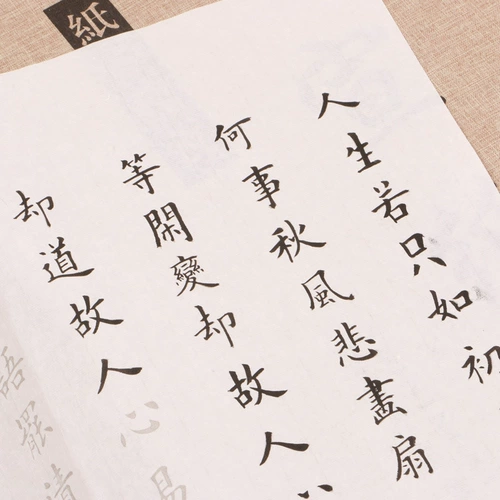 紙
人生若只如初
何事秋風悲畫扇
等閑變却故人心
却道故人心易
語罷清